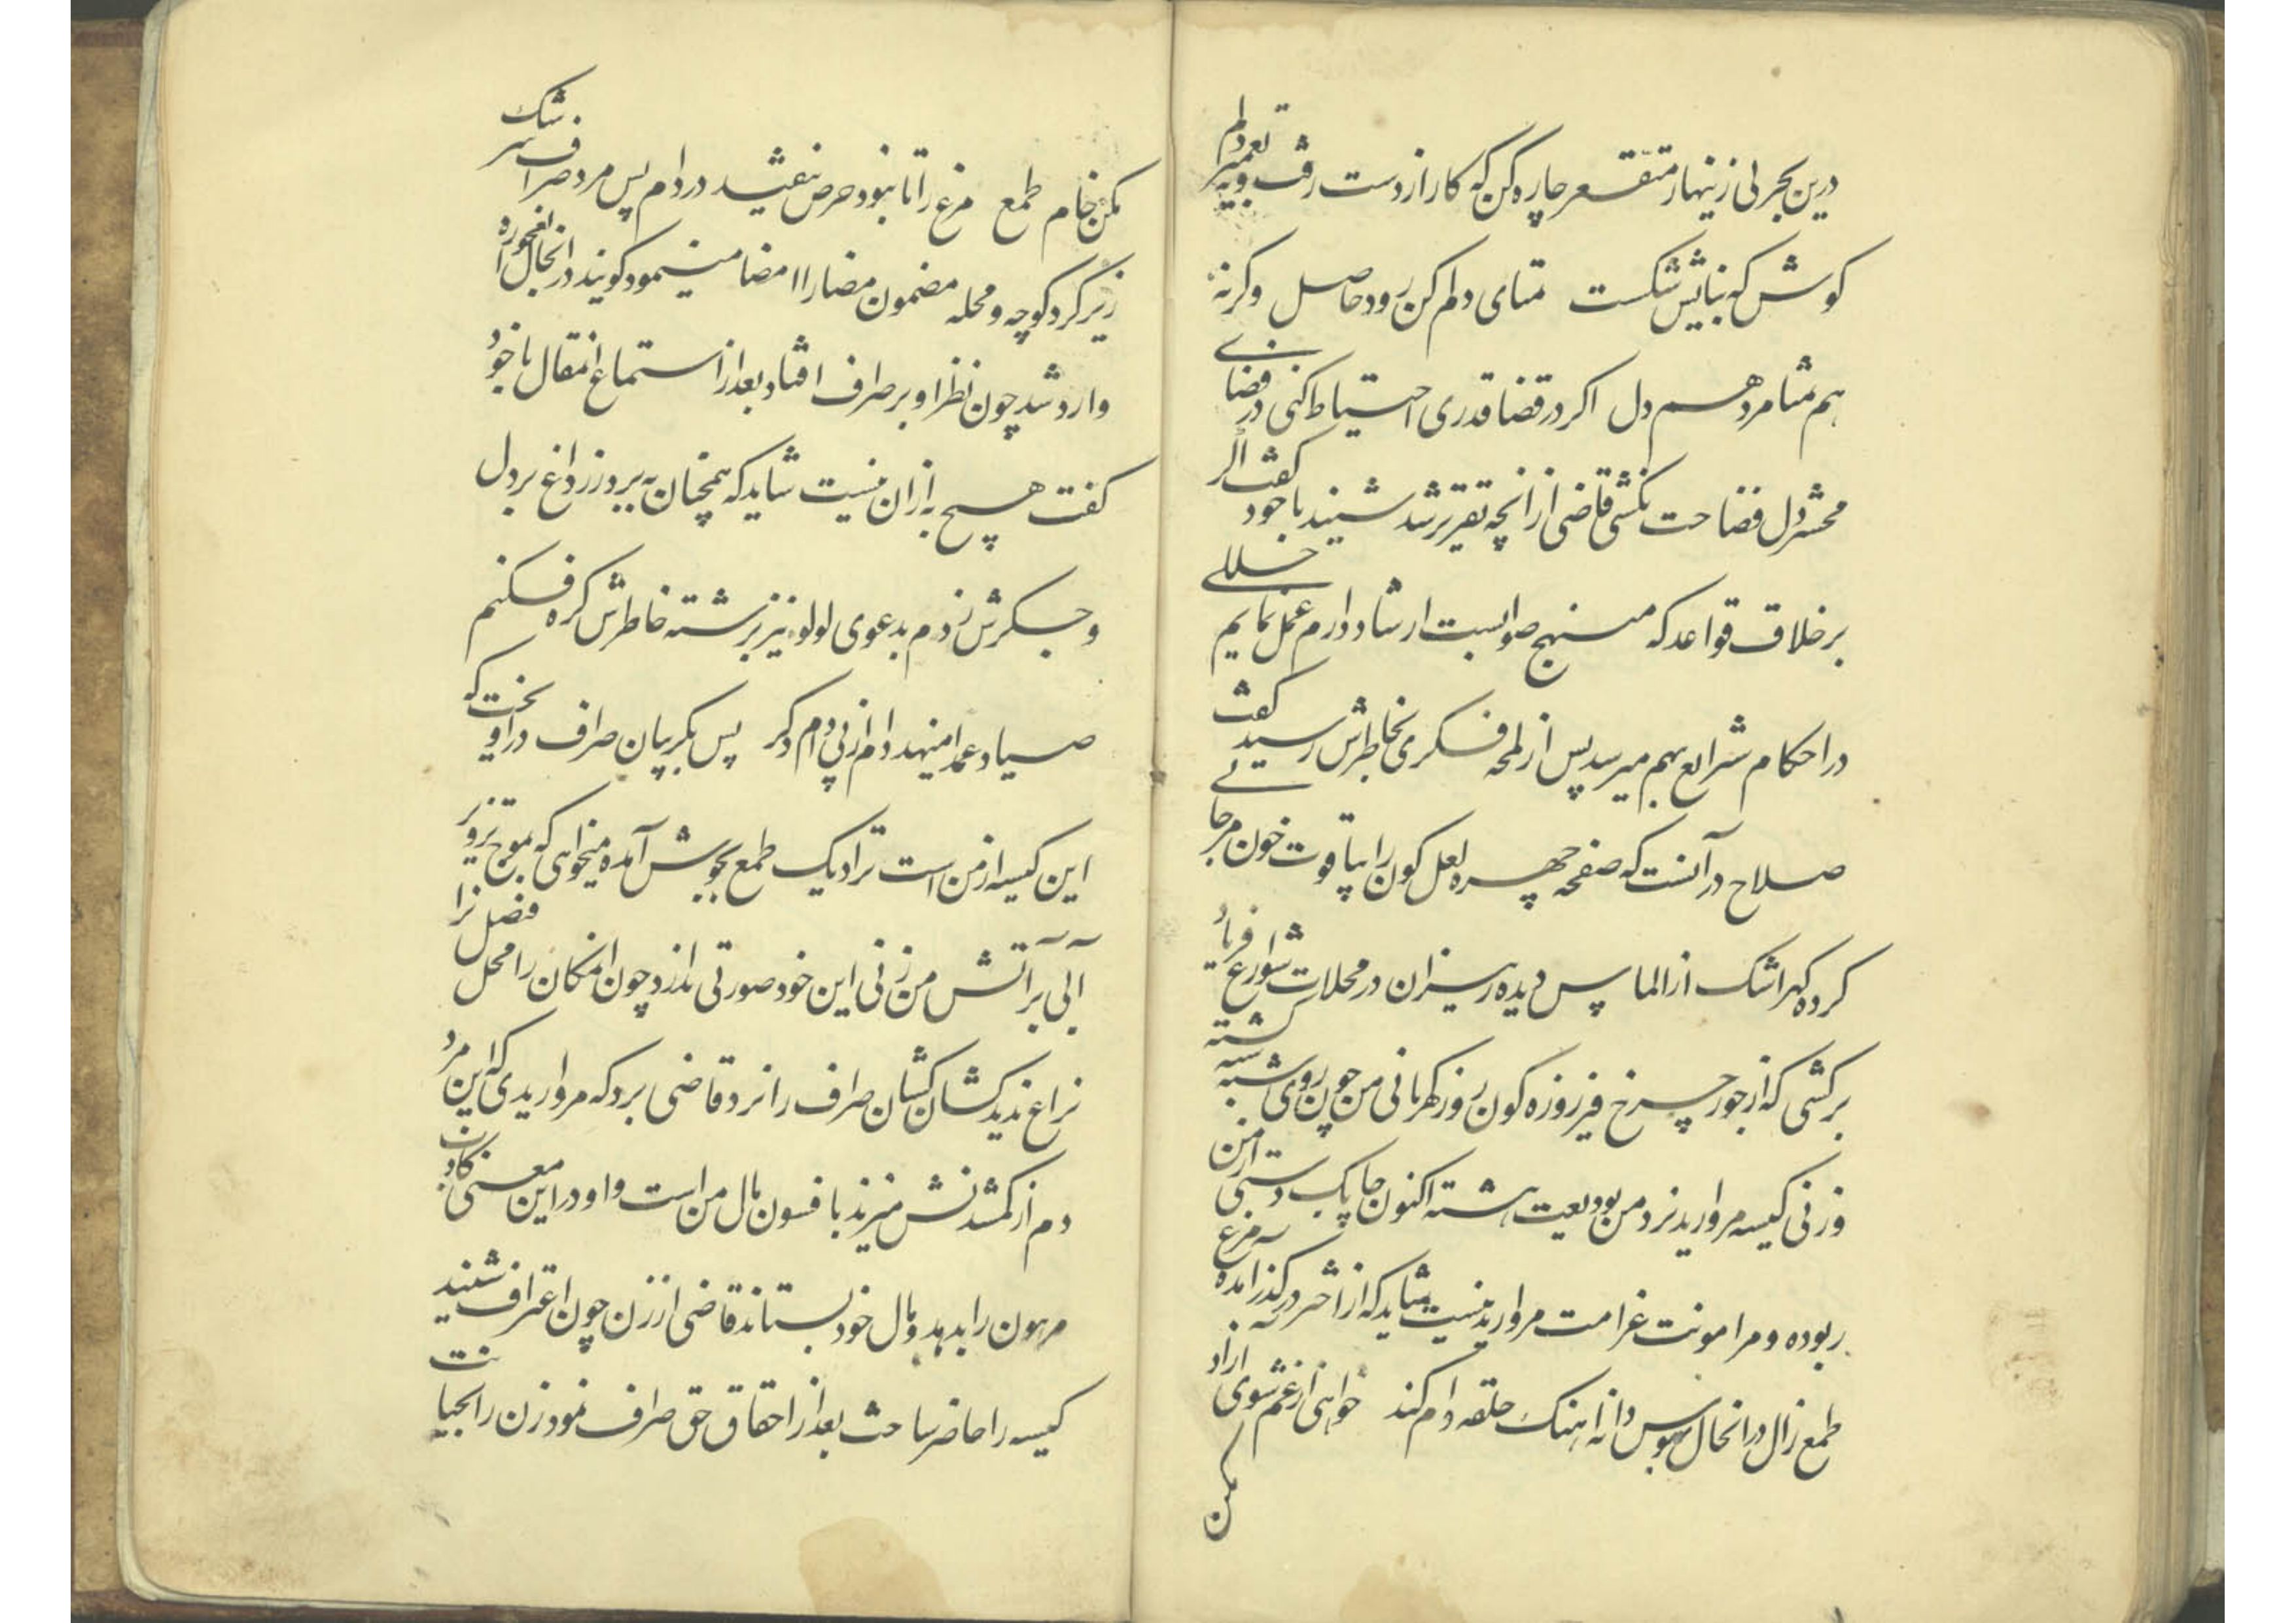 درین بحر بی زینهار متقعر چاره کن که کار از دست رفت و به تعمیر دلم
کوش که بنایش شکست تمنای دلم کن رود حاصل و کرنه
هم تمنا مرد هم دل اکر در قضا قدری احتیاط کنی در فضای
محشر دل فضاحت نکشی قاضی از انچه تقریر شد شنید با خود کفت اکر
برخلاف قواعد که منهج صوابست ارشاد دارم عمل نمایم خللی
در احکام شرایع بهم میرسد پس از لمحه فکری بخاطرش رسید کفت
صلاح در آنست که صفحه چهره لعل کون را بیاقوت خون مرجانی
کرده کهر اشک از الماس دیده ریزان در محلات شوارع فریاد
برکشی که از جور چرخ فیروزه کون روز کهربائی من چون روی شبه کشته
و زنی کیسه مروارید نزد من بودیعت هشته اکنون چابک دستی از من
ربوده و مرا مونت غرامت مروارید نیست شاید که از اخر در کذر آمده مرغ
طمع زال در انحال بهوس دانه اهنک حلقه دام کند خواهی از غم شوی آزاد
مکن
مکن خام طمع مرغ را تا نبود حرص نیفتد در دام پس مرد صراف سرشک
ریز کرد کوچه و محله مضمون مضا را امضا مینمود کویند در انحال
وارد شد چون نظر او بر صراف افتاد بعد از استماع انمقال با خود
کفت هیچ به از ان نیست شاید که همچنان به برد زر داغ بر دل
و جکرش زدم بدعوی لولو نیز بر رشته خاطرش کره فکنم
صیاد عمدا منهد دام از پی دام دکر پس بکریبان صراف در اویخت که
این کیسه از من است ترا دیک طمع بجوش آمده میخواهی که بموج تزویر
آبی بر آتش من زنی این خود صورتی ندارد چون امکان را محل فضل
نزاع ندید کشان کشان صراف را نزد قاضی برد که مرواریدی که این مرد
دم از کمشدنش میزند با فسون مال من است و او در این معنی کاذب
مرهون را بدهد و مال خود بستاند قاضی از زن چون اعتراف شنید
کیسه را حاضر ساخت بعد از احقاق حق صراف نمود زن را بخیانت